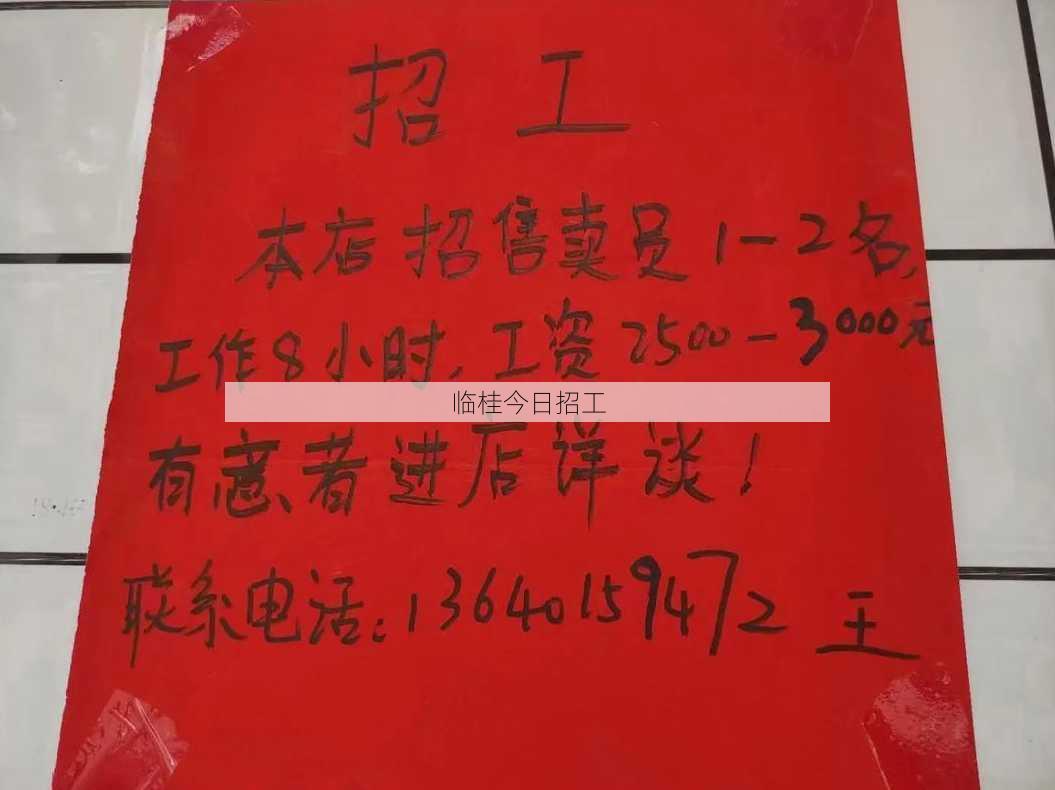 招工
本店招售卖员1-2名,
工作8小时,工资2500-3000元
临桂今日招工
有意者进店详谈!
联系电话:13640159472 王